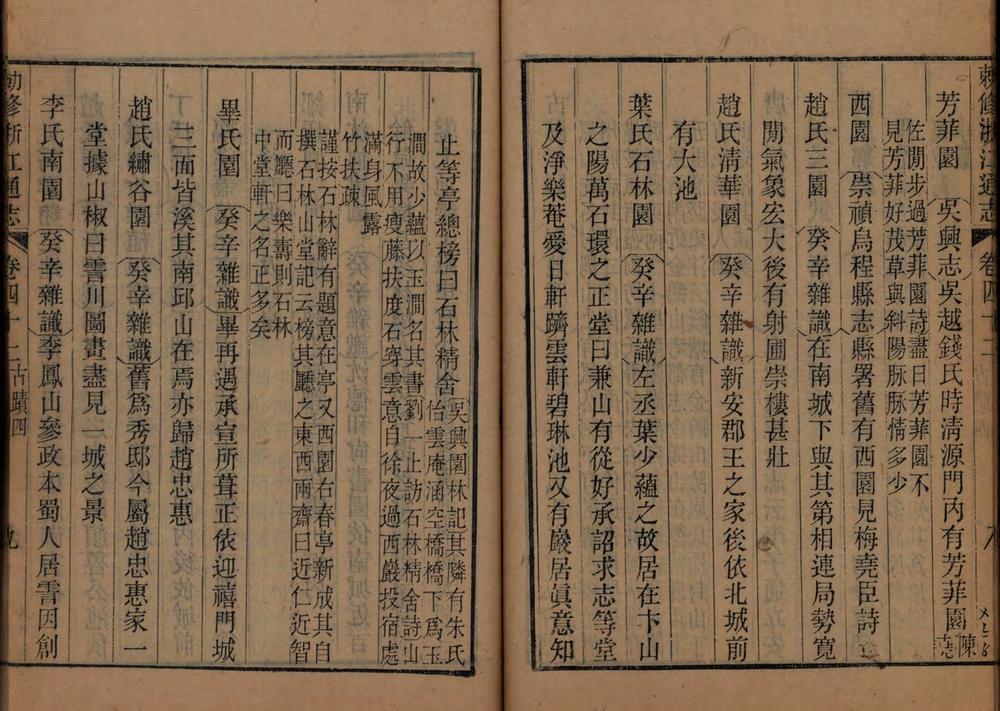 敕修浙江通志 卷四十二 八
芳菲園 吳興志吳越錢氏時清源門內有芳菲園 陳堯
佐閒步過芳菲園詩盡日芳菲園不
見芳菲好茂草與斜陽脉脉情多少
西園 崇禎烏程縣志縣署舊有西園見梅堯臣詩
趙氏三園 癸辛雜識在南城下與其第相連局勢寬
閒氣象宏大後有射圃崇樓甚壯
趙氏清華園 癸辛雜識新安郡王之家後依北城前
有大池
葉氏石林園 癸辛雜識左丞葉少蘊之故居在卞山
之陽萬石環之正堂曰兼山有從好承詔求志等堂
及淨樂菴愛日軒躋雲軒碧琳池又有巖居眞意知
止等亭總榜曰石林精舍 吳興園林記其隣有朱氏
怡雲庵涵空橋橋下爲玉
澗故少蘊以玉澗名其書劉一止訪石林精舍詩山
行不用瘦藤扶度石穿雲意自徐夜過西巖投宿處
滿身風露
竹扶疎
謹按石林辭有題意在亭又西園右春亭新成其自
撰石林山堂記云榜其廳之東西兩齋曰近仁近智
而廳曰樂壽則石林
中堂軒之名正多矣
畢氏園 癸辛雜識畢再遇承宣所葺正依迎禧門城
三面皆溪其南邱山在焉亦歸趙忠惠
趙氏繡谷園 癸辛雜識舊爲秀邸今屬趙忠惠家一
堂據山椒曰霅川圖畫盡見一城之景
李氏南園 癸辛雜識李鳳山參政本蜀人居霅因創
敕修浙江通志 卷四十二 古蹟四 九